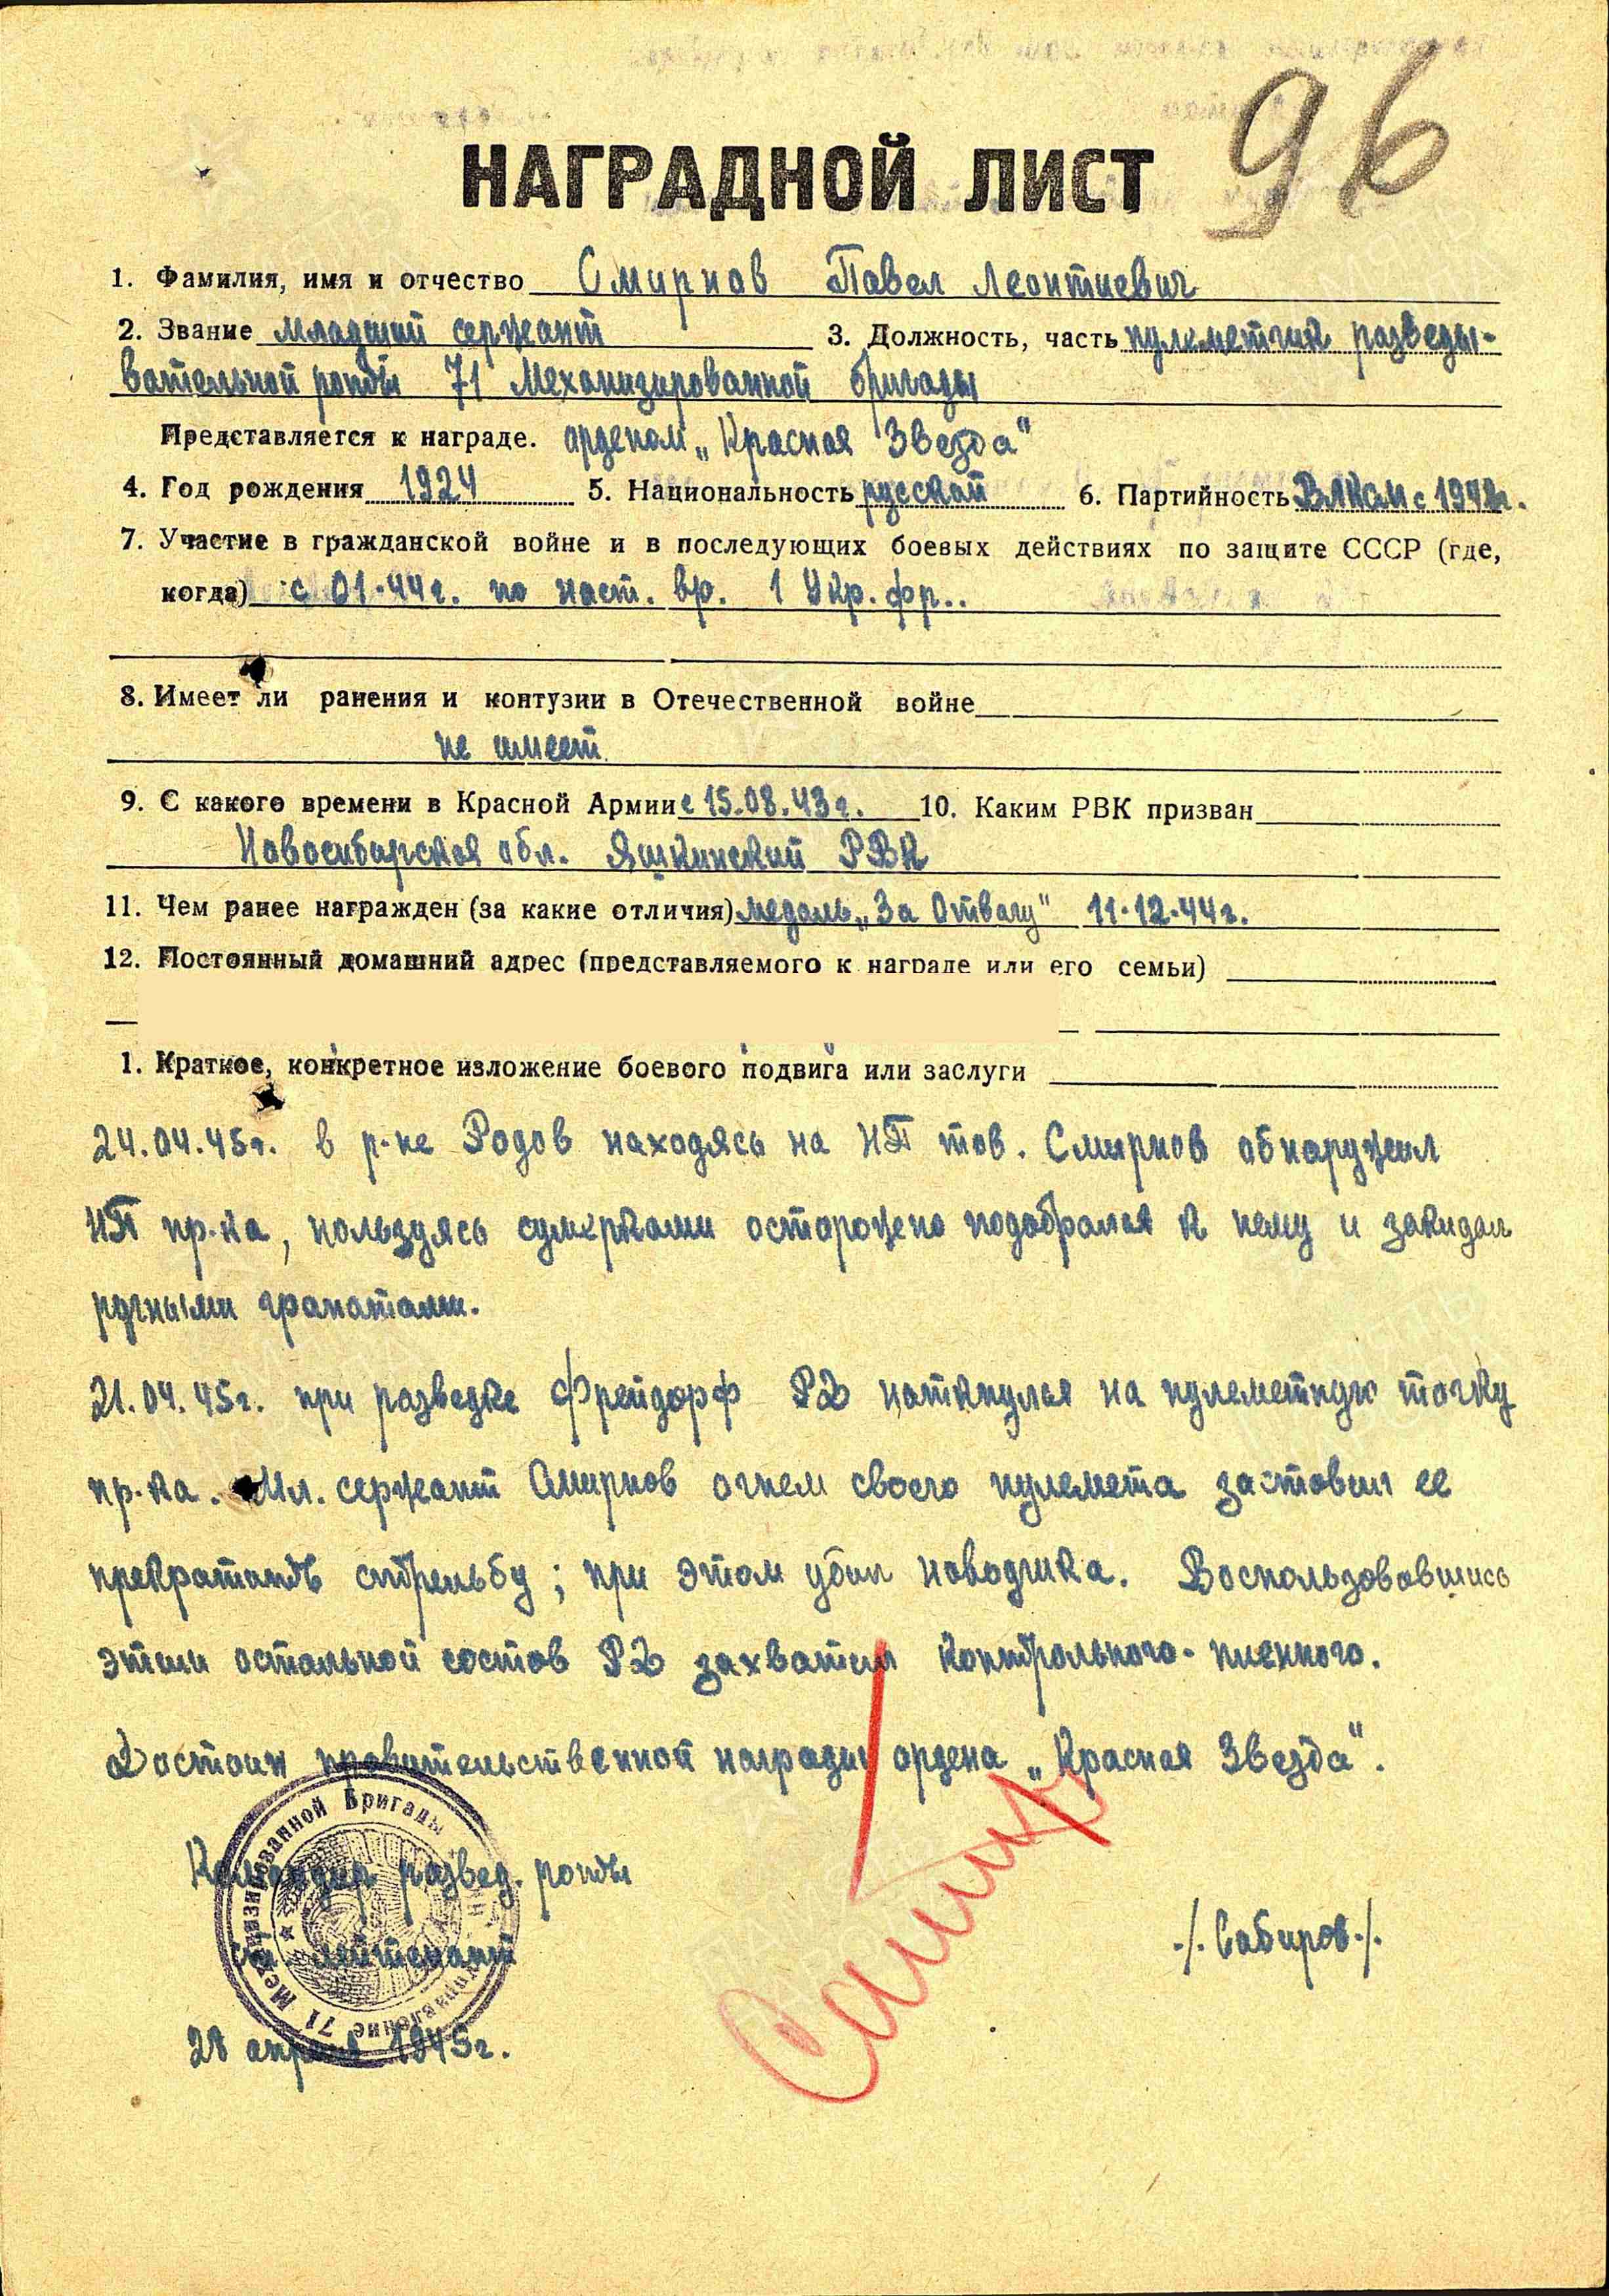 96
НАГРАДНОЙ ЛИСТ
1. Фамилия, имя и отчество Смирнов Павел Леонтиевич
2. Звание младший сержант 3. Должность, часть пулеметчик разведы-
вательной роты 71 Механизированной бригады
Представляется к награде. орденом „Красная Звезда"
4. Год рождения 1924 5. Национальность русский 6. Партийность ВЛКСМ с 1942г.
7. Участие в гражданской войне и в последующих боевых действиях по защите СССР (где,
когда) с 01.44г. по наст. вр. 1 Укр. фр..
8. Имеет ли ранения и контузии в Отечественной войне
не имеет
9. С какого времени в Красной Армии с 15.08.43г. 10. Каким РВК призван
Новосибирская обл. Яшкинский РВК
11. Чем ранее награжден (за какие отличия) медаль „За Отвагу" 11.12.44г.
12. Постоянный домашний адрес (представляемого к награде или его семьи)
1. Краткое, конкретное изложение боевого подвига или заслуги
24.04.45г. в р-не Родов находясь на НП тов. Смирнов обнаружил
НП пр-ка, пользуясь сумерками осторожно подобрался к нему и закидал
ручными гранатами.
21.04.45г. при разведке Фрейдорф РД наткнулся на пулеметную точку
пр-ка. Мл. сержант Смирнов огнем своего пулемета заставил ее
прекратить стрельбу; при этом убил наводчика. Воспользовавшись
этим остальной состав РД захватил контрольного-пленного.
Достоин правительственной награды ордена „Красная Звезда".
Командир развед. роты
ст. лейтенант
./. Сабиров ./.
28 апреля 1945г.
Управление 71 Механизированной Бригады